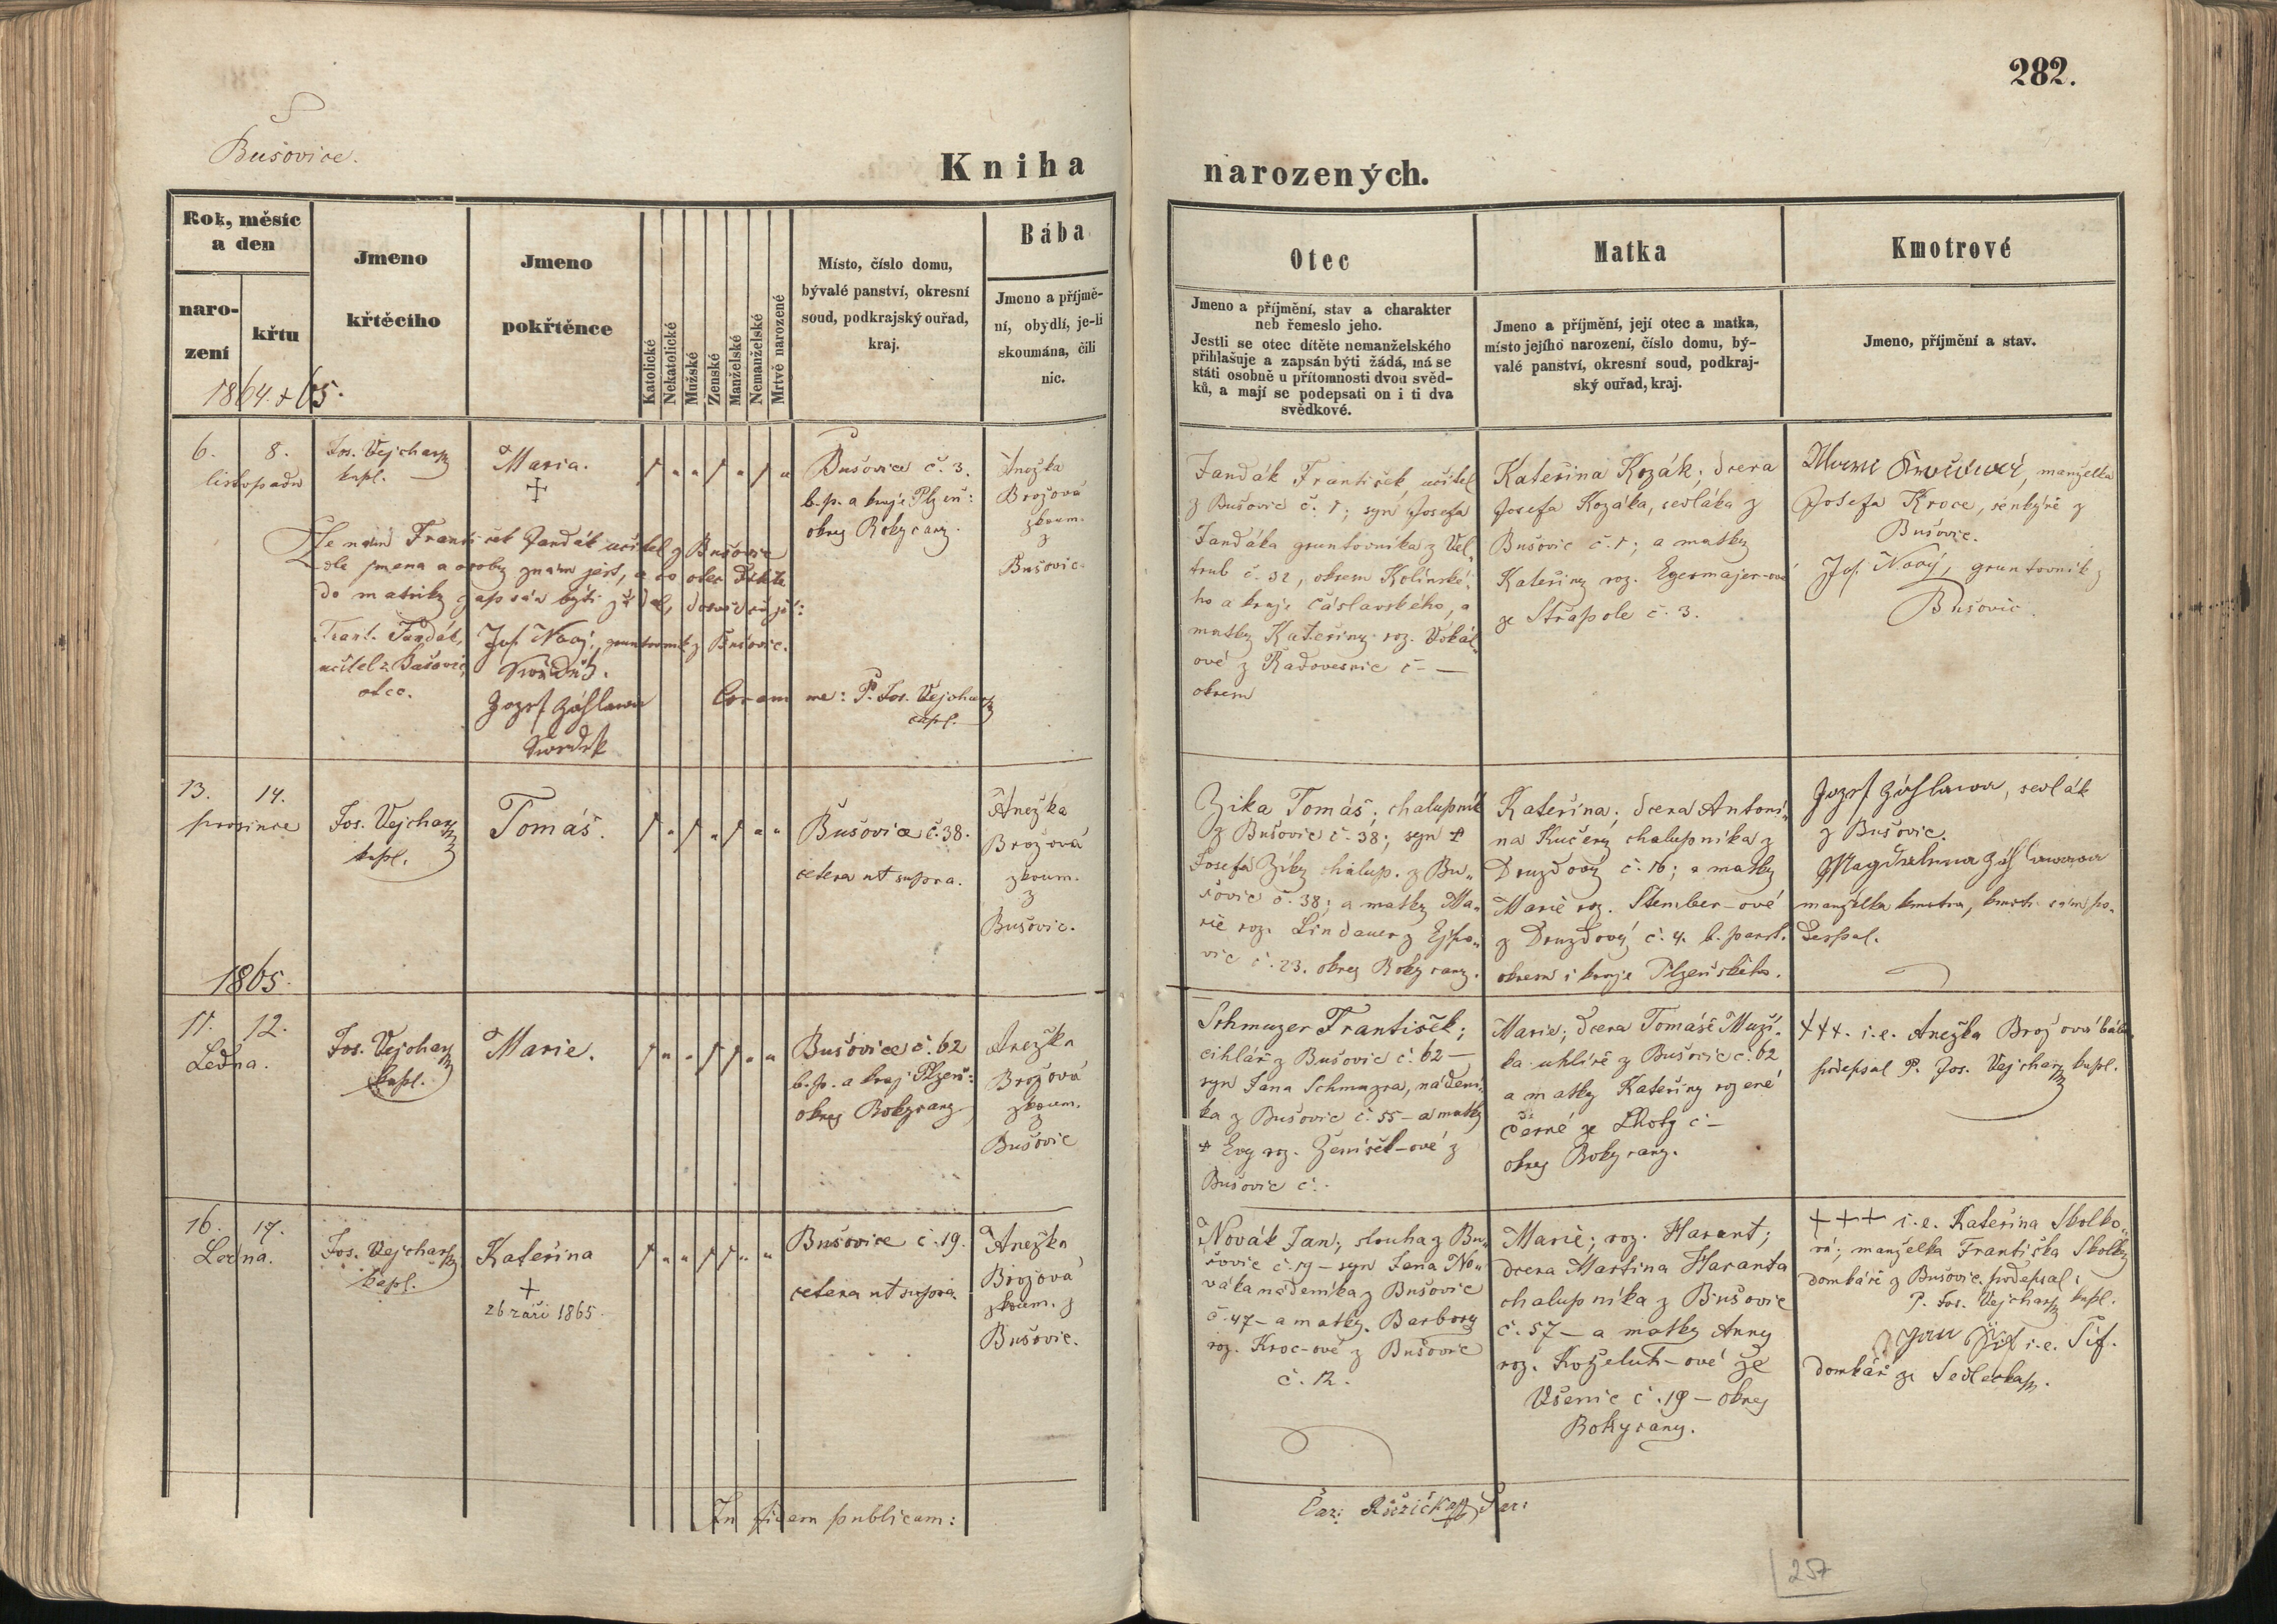 282.
Bušovice.
Kniha narozených.
Rok, měsíc
a den
naro-
zení
křtu
1864. + 65.
Jmeno
křtěcího
Jmeno
pokřtěnce
Katolické
Nekatolické
Mužské
Ženské
Manželské
Nemanželské
Mrtvě narozené
Místo, číslo domu,
bývalé panství, okresní
soud, podkrajský ouřad,
kraj.
Bába
Jmeno a příjmě-
ní, obydlí, je-li
skoumána, čili
nic.
Otec
Jmeno a příjmění, stav a charakter
neb řemeslo jeho.
Jestli se otec dítěte nemanželského
přihlašuje a zapsán býti žádá, má se
státi osobně u přítomnosti dvou svěd-
ků, a mají se podepsati on i ti dva
svědkové.
Matka
Jmeno a příjmění, její otec a matka,
místo jejího narození, číslo domu, bý-
valé panství, okresní soud, podkraj-
ský ouřad, kraj.
Kmotrové
Jmeno, příjmění a stav.
6. 8.
listopadu
Jos. Vejcharský
kapl.
Maria.
+
Bušovice č. 3.
b. p. a kraje Plzeň:
okres Rokycany.
Anežka
Brožová
zkoum.
z
Bušovic.
Že nám František Jandák učitel z Bušovic
dle jmena a osoby znám jest, a co otec dítěte
do matriky zapsán býti žádal, dosvědčují:
Frant. Jandák,
učitel z Bušovic,
otec.
Jos. Nový, gruntovník z Bušovic.
Swědek.
Jozef Záhlawa
Swědek
Coram me: P. Jos. Vejcharský
capl.
Jandák František, učitel
z Bušovic č. 1; syn Josefa
Jandáka gruntovníka z Vel„
trub č. 32, okresu Kolínské„
ho a kraje Čáslavského, a
matky Kateřiny roz. Vokál„
ové z Radovesnic č. —
okresu
Kateřina Kozák; dcera
Josefa Kozáka, sedláka z
Bušovic č. 1; a matky
Kateřiny roz. Egermajer-ové
ze Střapole č. 3.
manželka
Josefa Kroce, šenkýře z
Bušovic.
Jos. Nový, gruntovník z
Bušovic.
13. 14.
prosince
Jos. Vejcharský
kapl.
Tomáš.
Bušovice č. 38.
cetera ut supra.
Anežka
Brožová
zkoum.
z
Bušovic.
Zika Tomáš; chalupník
z Bušovic č. 38; syn +
Josefa Ziky chalup. z Bu„
šovic č. 38; a matky Ma„
rie roz. Lindauer z Ejpo„
vic č. 23. okres Rokycany.
Kateřina; dcera Antoní„
na Kučery chalupníka z
Druzdový č. 16; a matky
Marie roz. Štember-ové
z Druzdový č. 4. b. panst.
okresu i kraje Plzeňského.
Jozef Záhlawa, sedlák
z Bušovic.
Magdalena Záhlawowa
manželka kmotra, kmotr sám po„
depsal.
1865.
11. 12.
Ledna.
Jos. Vejcharský
kapl.
Marie.
Bušovice č. 62
b. p. a kraj Plzeň:
okres Rokycany
Anežka
Brožová
zkoum.
z
Bušovic
Schmuzer František;
cihlář z Bušovic č. 62 —
syn Jana Schmuzra, nádení„
ka z Bušovic č. 55 — a matky
+ Evy roz. Ženíšek-ové z
Bušovic č. -
Marie; dcera Tomáše Muzí„
ka uhlíře z Bušovic č. 62
a matky Kateřiny rozené
Černé ze Lhoty č —
okres Rokycany.
+++. i. e. Anežka Brožová bába,
podepsal P. Jos. Vejcharský kapl.
16. 17.
Ledna.
Jos. Vejcharský
kapl.
Kateřina
+
26 září 1865.
Bušovice č. 19.
cetera ut supra.
Anežka
Brožová
zkoum. z
Bušovic.
Novák Jan; slouha z Bu„
šovic č. 19 — syn Jana No„
váka nádeníka z Bušovic
č. 47 — a matky Barbory
roz. Kroc-ové z Bušovic
č. 12.
Marie; roz. Harant;
dcera Martina Haranta
chalupníka z Bušovic
č. 57 — a matky Anny
roz. Koželuh-ové ze
Všenic č. 19 — okres
Rokycany.
+++ i. e. Kateřina Skolko„
vá; manželka Františka Skolky
domkáře z Bušovic podepsal:
P. Jos. Vejcharský kapl.
Jan Šif i. e. Šíf.
domkář ze Sedlecka.
In fidem publicam:
257